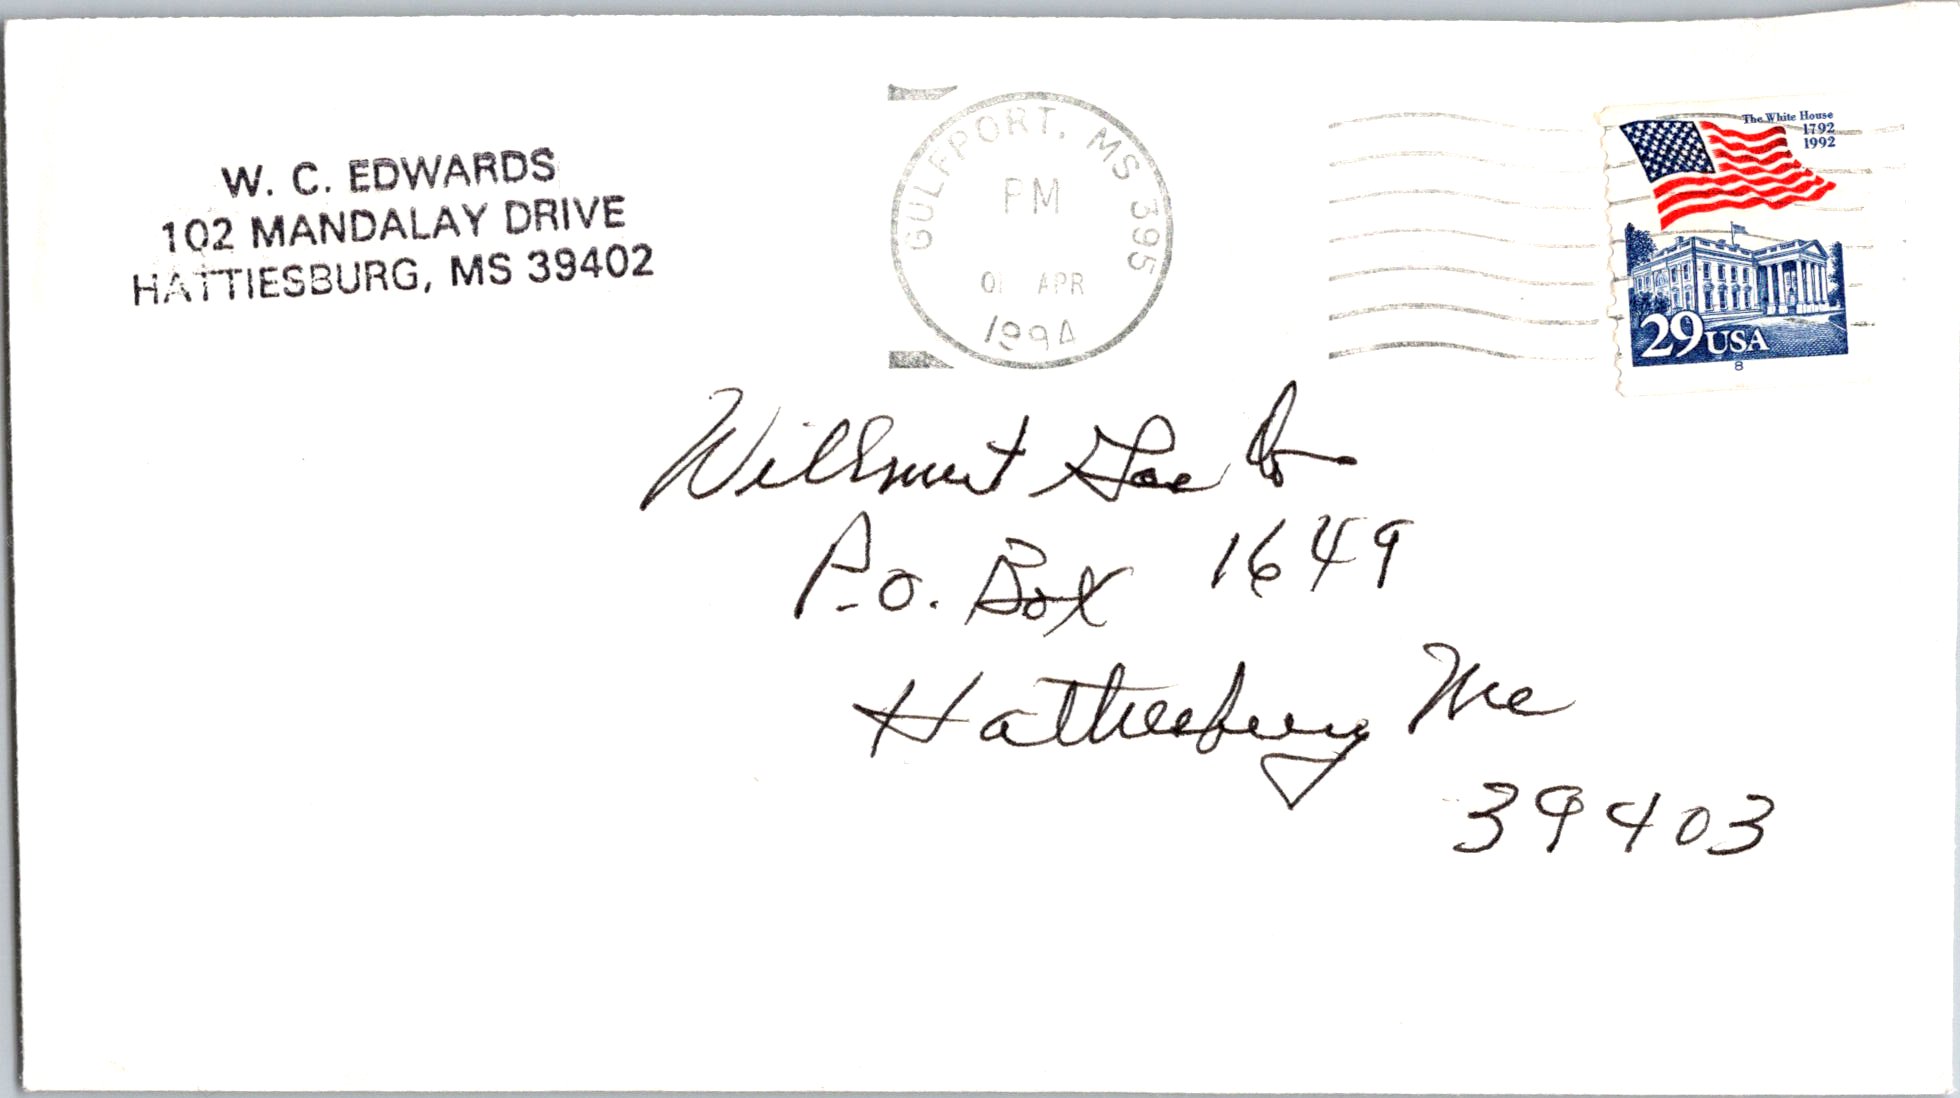 W. C. EDWARDS
102 MANDALAY DRIVE
HATTIESBURG, MS 39402
GULFPORT, MS 395
PM
01 APR
1994
The White House
1792
1992
29 USA
8
Willmut Gas Co
P.O. Box 1649
Hattiesburg Ms
39403